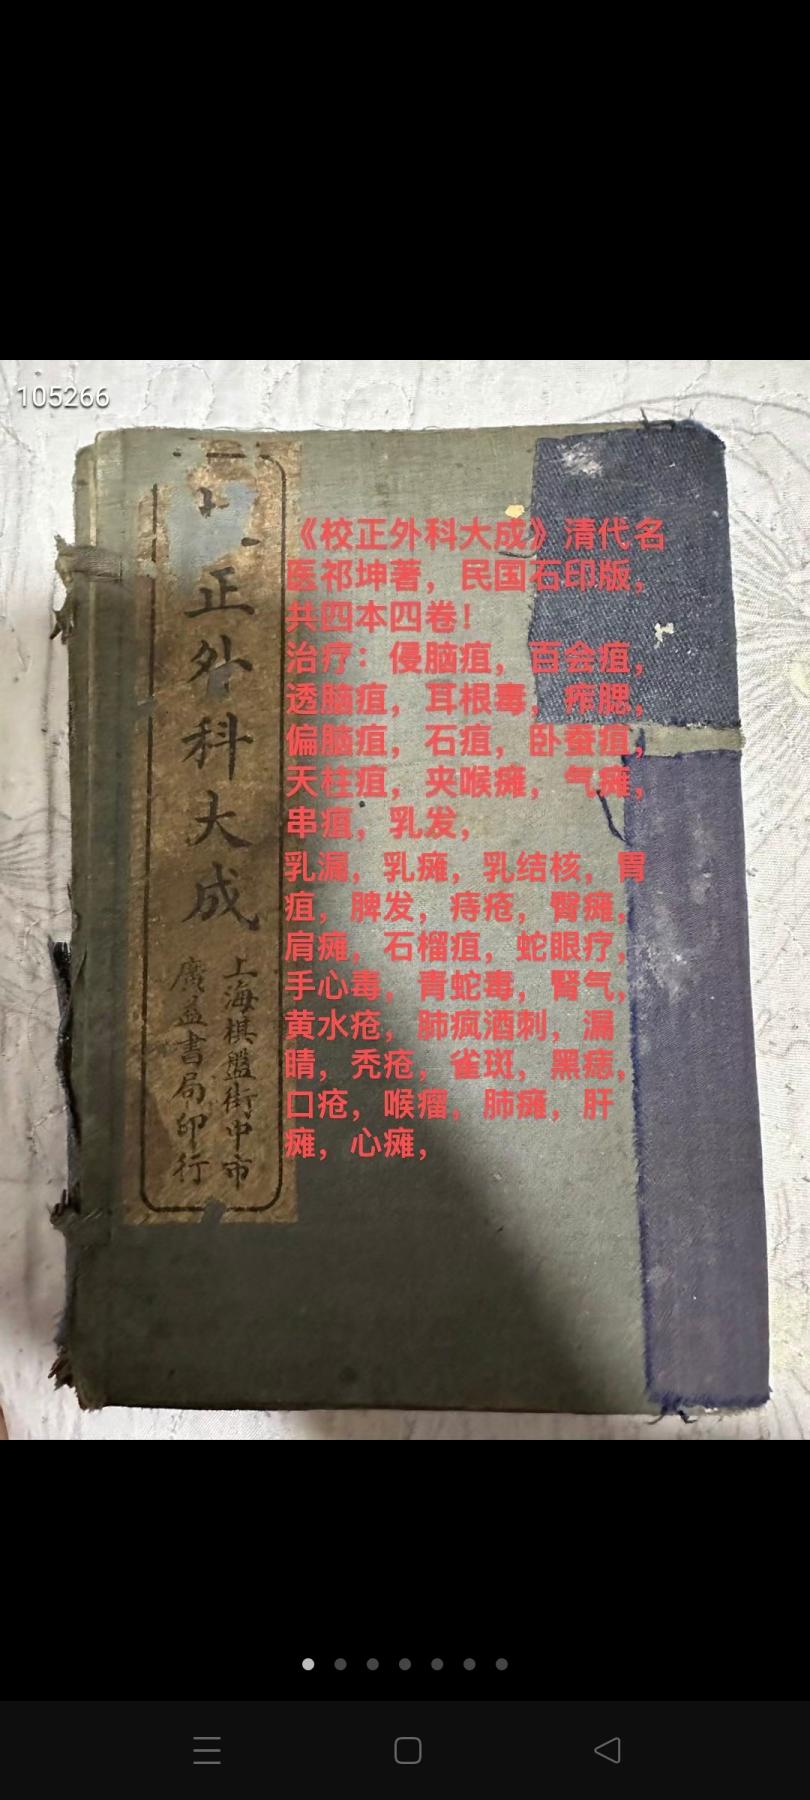 105266
正外科大成
上海棋盤街中市
廣益書局印行
《校正外科大成》清代名
医祁坤著，民国石印版，
共四本四卷！
治疗：侵脑疽，百会疽，
透脑疽，耳根毒，痄腮，
偏脑疽，石疽，卧蚕疽，
天柱疽，夹喉痈，气瘫，
串疽，乳发，
乳漏，乳瘫，乳结核，胃
疽，脾发，痔疮，臀瘫，
肩瘫，石榴疽，蛇眼疗，
手心毒，青蛇毒，肾气，
黄水疮，肺疯酒刺，漏
睛，秃疮，雀斑，黑痣，
口疮，喉瘤，肺瘫，肝
瘫，心瘫，